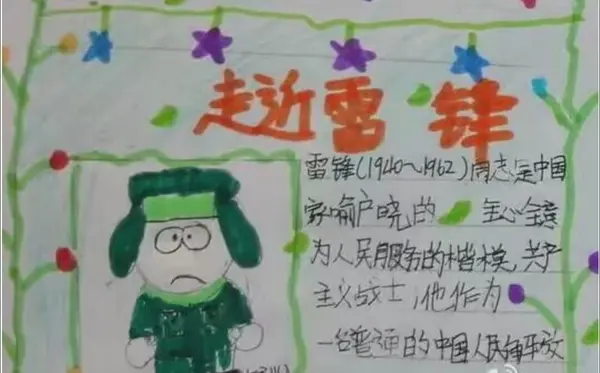 走近雷锋
雷锋(1940~1962)同志是中国
家喻户晓的 全心全意
为人民服务的楷模,共产
主义战士,他作为
一名普通的中国人民解放